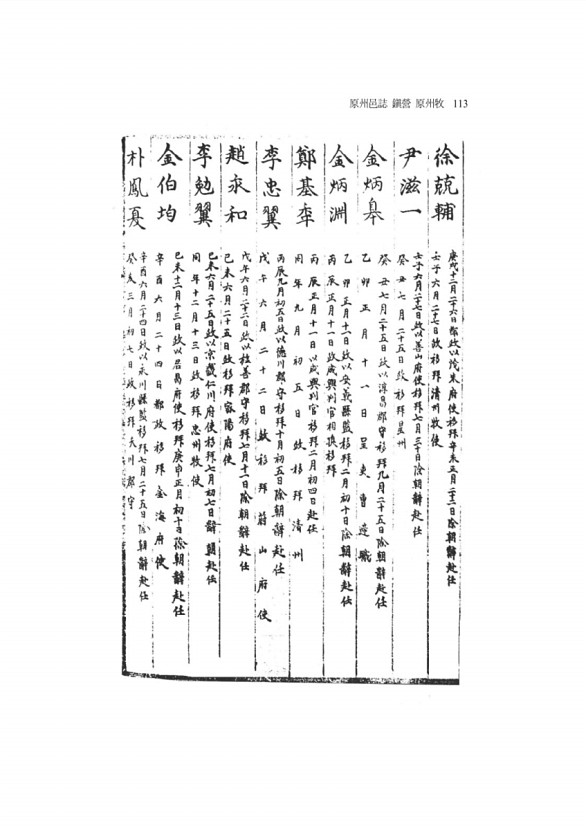 原州邑誌 鎭營 原州牧 113
徐兢輔
庚戌十二月二十六日都政以茂朱府使移拜辛亥正月二十二日除朝辭赴任
壬子六月二十七日政移拜清州牧使
尹滋一
壬子六月二十七日政以善山府使移拜七月三十日除朝辭赴任
癸丑七月二十五日政移拜星州
金炳皐
癸丑七月二十五日政以淳昌郡守移拜九月二十五日除朝辭赴任
乙卯正月十一日呈吏曹遞職
金炳淵
乙卯正月十一日政以安義縣監移拜二月初十日除朝辭赴任
丙辰正月十一日政咸興判官相換移拜
鄭基
丙辰正月十一日以咸興判官移拜二月初四日赴任
同年九月初五日政移拜清州
李忠翼
丙辰九月初五日政以德川郡守移拜十月初五日除朝辭赴任
戊午六月二十二日政移拜蔚山府使
趙永和
戊午六月二十二日政以旌善郡守移拜七月十一日除朝辭赴任
己未六月二十五日政移拜密陽府使
李勉翼
己未六月二十五日政以京畿仁川府使移拜七月初七日辭朝赴任
同年十二月十三日政移拜忠州牧使
金伯均
己未十二月十三日政以居昌府使移拜庚申正月初十日除朝辭赴任
辛酉六月二十四日都政移拜金海府使
朴鳳夏
辛酉六月二十四日政以永川縣監移拜七月二十五日除朝辭赴任
癸亥三月初七日政移拜天川郡守